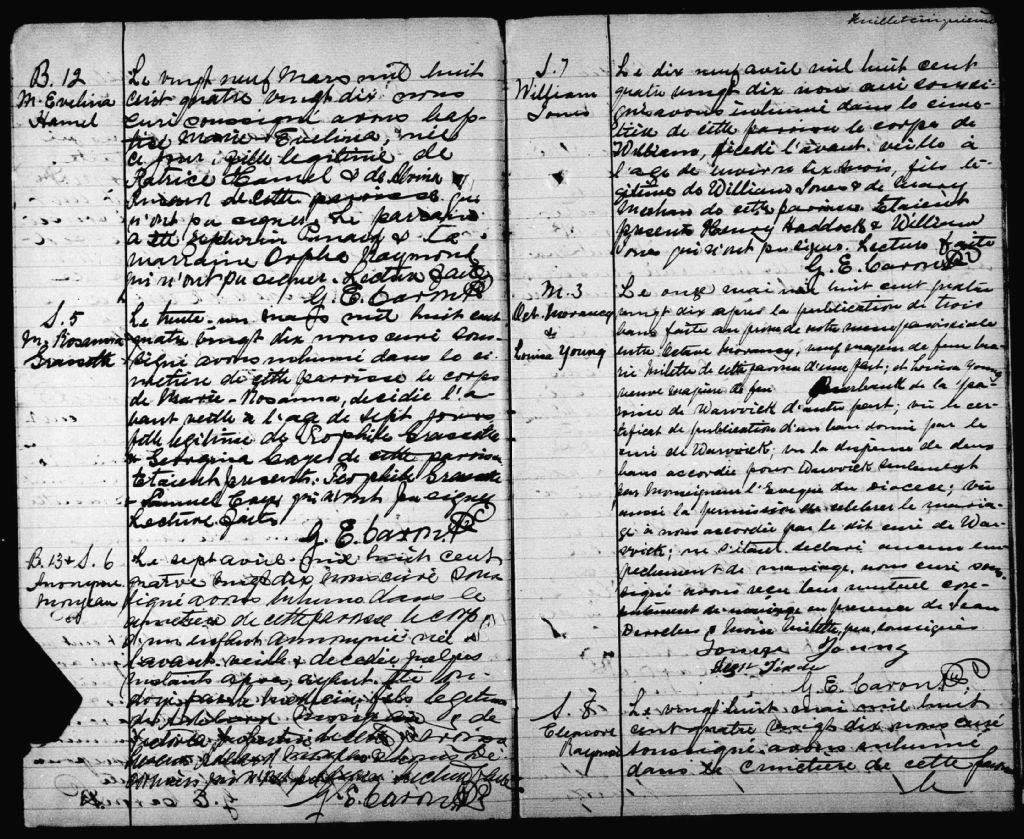 B. 12
M. Evelina
Hamel
Le vingt neuf Mars mil huit
cent quatre vingt dix nous
curé soussigné avons bap-
tisé Marie Evelina, née
ce jour, fille legitime de
Patrice Hamel & de
de cette paroisse qui
n'ont pu signer. Le parrain
a été Zephirin & la
marraine Orpha Raymond
qui n'ont pu signer. Lecture faite
G. E. Caron Ptre
S. 5
M. Rosanna
Le trente-un Mars mil huit cent
quatre vingt dix nous curé sous-
signé avons inhumé dans le ci-
metière de cette paroisse le corps
de Marie-Rosanna, décédée l'a-
vant veille a l'age de sept jours
fille legitime de Théophile
& Georgina de cette paroisse
Etaient presents Théophile
& Samuel qui n'ont pu signer
Lecture faite
G. E. Caron Ptre
B. 13 & S. 6
Anonyme
Le sept avril mil huit cent
quatre vingt dix nous curé sous-
signé avons inhumé dans le
cimetière de cette paroisse le corps
d'un enfant anonyme né
l'avant veille & décédé quelques
instants après, ayant été on-
doyé par le fils legitime
de & de
Lecture faite
G. E. Caron Ptre
feuillet cinquième
S. 7
William
Jones
Le dix neuf avril mil huit cent
quatre vingt dix nous curé soussi-
gné avons inhumé dans le cime-
tière de cette paroisse le corps de
William, décédé l'avant veille à
l'age de environ six mois, fils lé-
gitime de William Jones & de Mary
Meehan de cette paroisse. Etaient
presents Henry Haddock & William
Jones qui n'ont pu signer. Lecture faite
G. E. Caron Ptre
M. 3
Oct. Morancy
&
Louise Young
Le onze mai mil huit cent quatre
vingt dix après la publication de trois
bans faite au prône de notre messe paroissiale
entre Octave Morancy, veuf majeur de feue Ma-
rie Milette de cette paroisse d'une part; et Louisa Young
veuve majeure de feu Burbank de la pa-
roisse de Warwick d'autre part; vu le cer-
tificat de publication d'un ban donné par le
curé de Warwick; vu la dispense de deux
bans accordée pour Warwick seulement
par Monseigneur l'Evêque du diocèse; vu
aussi la permission de célébrer le maria-
ge à nous accordée par le dit curé de War-
wick; ne s'étant déclaré aucun em-
pêchement de mariage, nous curé sous-
signé avons reçu leur mutuel con-
sentement de mariage en presence de Jean
& Moïse Milette, soussignés
Louisa Young
G. E. Caron Ptre
S. 8
Eleonore
Raymond
Le vingt huit mai mil huit
cent quatre vingt dix nous curé
soussigné avons inhumé
dans le cimetière de cette paroisse
le